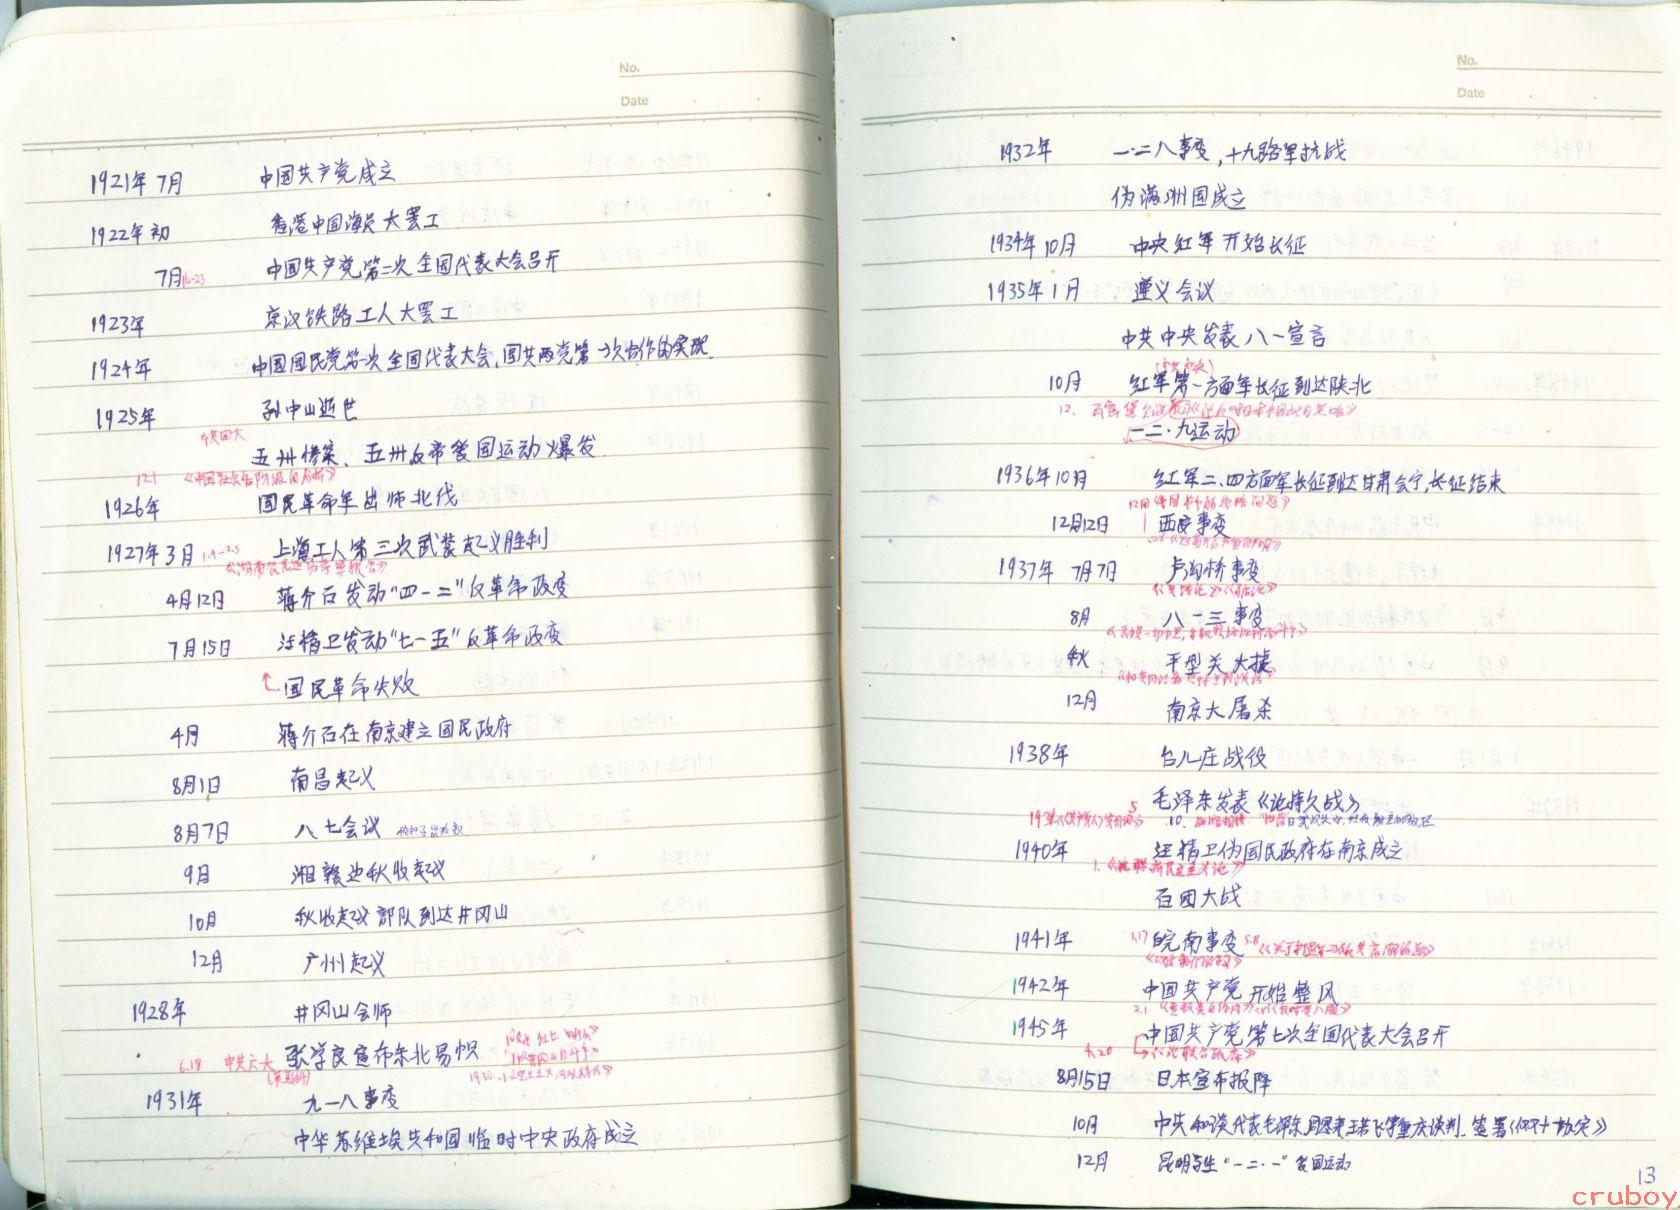 No.
Date
1921年7月 中国共产党成立
1922年初 香港中国海员大罢工
7月16-23 中国共产党第二次全国代表大会召开
1923年 京汉铁路工人大罢工
1924年 中国国民党第一次全国代表大会,国共两党第一次合作的实现.
1925年 孙中山逝世
中共四大
五卅惨案、五卅反帝爱国运动爆发.
12.1 《中国社会各阶级的分析》
1926年 国民革命军出师北伐
1927年3月 上海工人第三次武装起义胜利
1.4-2.5 《湖南农民运动考察报告》
4月12日 蒋介石发动"四一二"反革命政变
7月15日 汪精卫发动"七一五"反革命政变
国民革命失败
4月 蒋介石在南京建立国民政府
8月1日 南昌起义
8月7日 八七会议
9月 湘赣边秋收起义
10月 秋收起义部队到达井冈山
12月 广州起义
1928年 井冈山会师
张学良宣布东北易帜
6.18 中共六大
1930.1
1931年 九一八事变
中华苏维埃共和国临时中央政府成立
No.
Date
1932年 一·二八事变,十九路军抗战
伪满洲国成立
1934年10月 中央红军开始长征
1935年1月 遵义会议
中共中央发表八一宣言
(中共中央)
10月 红军第一方面军长征到达陕北
12. 瓦窑堡会议
一二·九运动
1936年10月 红军二、四方面军长征到达甘肃会宁,长征结束
12月
12月12日 西安事变
1937年 7月7日 卢沟桥事变
《实践论》《矛盾论》
8月 八一三事变
秋 平型关大捷
12月 南京大屠杀
1938年 台儿庄战役
5 毛泽东发表《论持久战》
10.
1940年 汪精卫伪国民政府在南京成立
1.《新民主主义论》
百团大战
1941年 1.17 皖南事变 5.8
《改造我们的学习》
1942年 中国共产党开始整风
2.1
1945年 中国共产党第七次全国代表大会召开
4.20 《论联合政府》
8月15日 日本宣布投降
10月 中共和谈代表毛泽东、周恩来、王若飞等重庆谈判.签署《双十协定》
12月 昆明学生"一二·一"爱国运动
13
cruboy